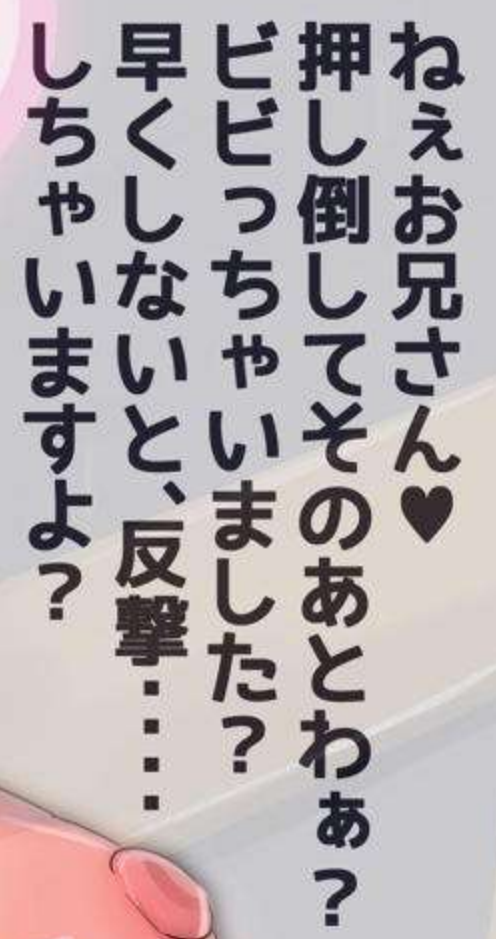 ねぇお兄さん♥
押し倒してそのあとわぁ？
ビビっちゃいました？
早くしないと、反撃‥‥
しちゃいますよ？